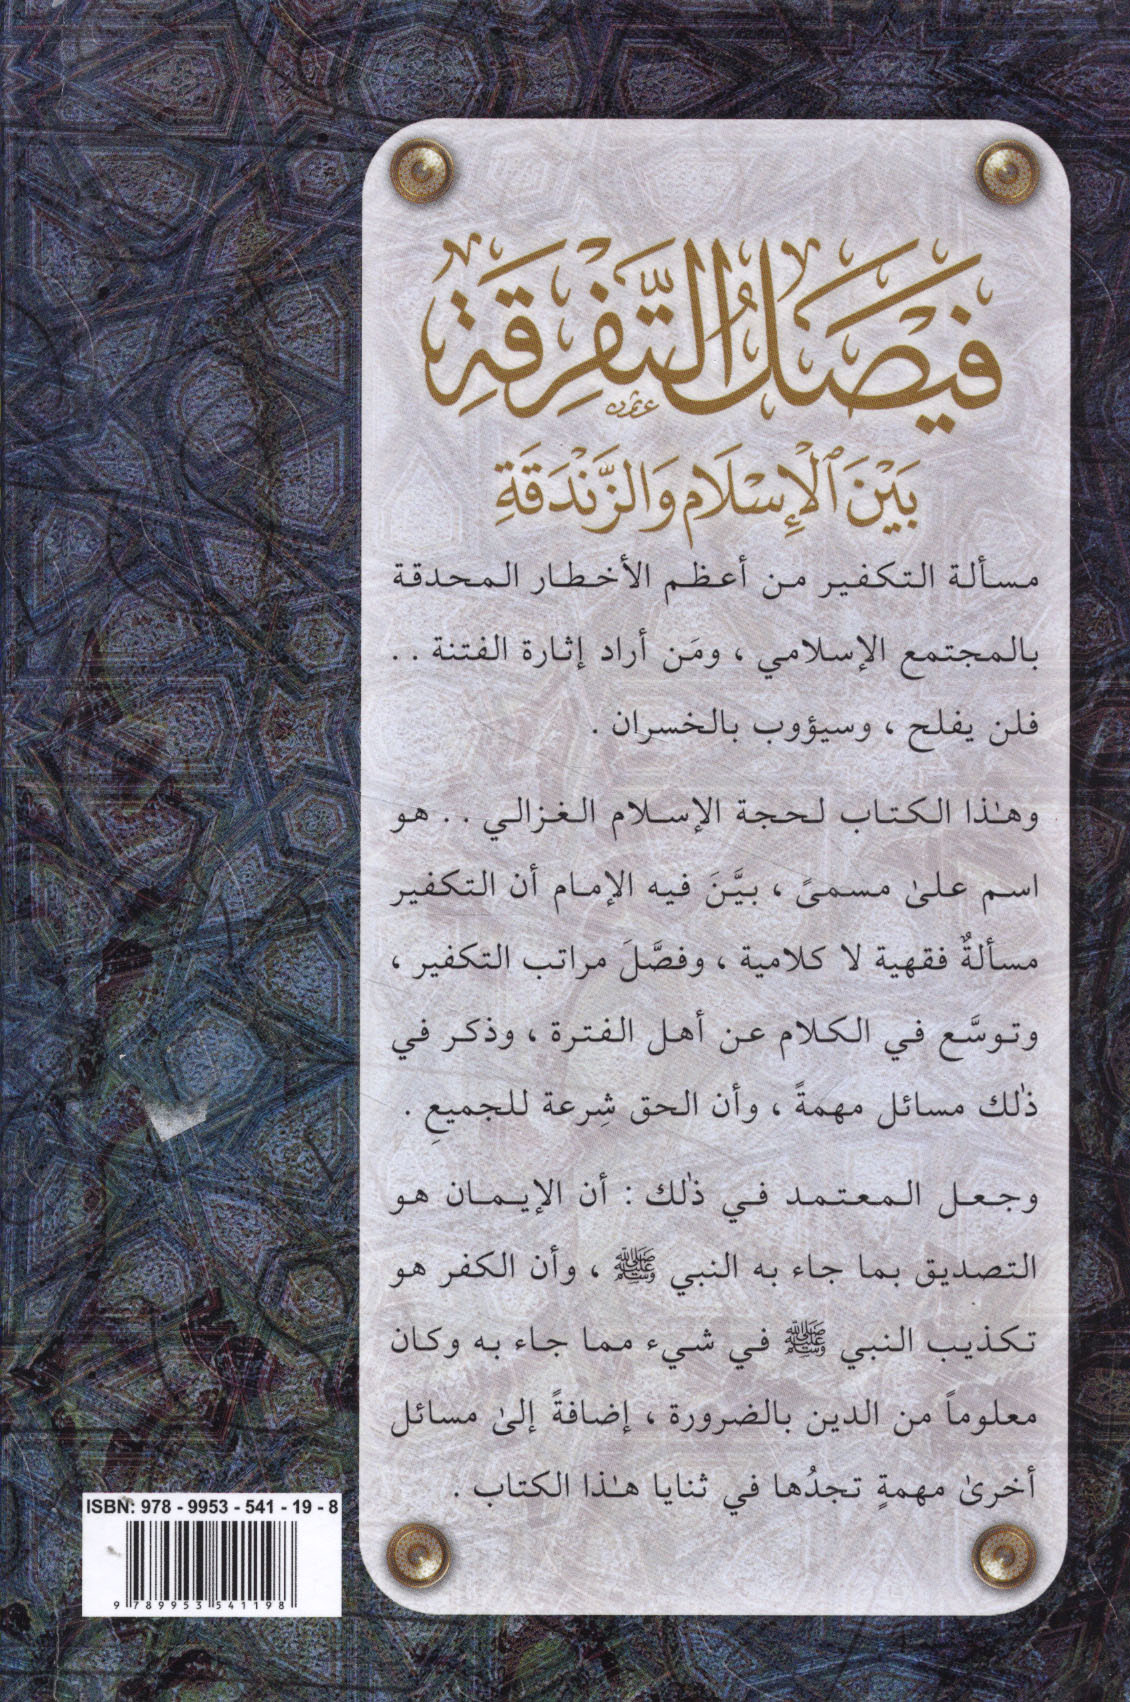 فَيْصَلُ التَّفْرِقَةِ
بَيْنَ ٱلْإِسْلَامِ وَالزَّنْدَقَةِ
مسألة التكفير من أعظم الأخطار المحدقة
بالمجتمع الإسلامي ، ومَن أراد إثارة الفتنة . .
فلن يفلح ، وسيؤوب بالخسران .
وهـٰذا الكتاب لحجة الإسلام الغزالي . . هو
اسم علىٰ مسمىً ، بيَّنَ فيه الإمام أن التكفير
مسألةٌ فقهية لا كلامية ، وفصَّلَ مراتب التكفير ،
وتوسَّع في الكلام عن أهل الفترة ، وذكر في
ذٰلك مسائل مهمةً ، وأن الحق شِرعة للجميعِ .
وجعل المعتمد في ذٰلك : أن الإيمان هو
التصديق بما جاء به النبي ﷺ ، وأن الكفر هو
تكذيب النبي ﷺ في شيء مما جاء به وكان
معلوماً من الدين بالضرورة ، إضافةً إلىٰ مسائل
أخرىٰ مهمةٍ تجدُها في ثنايا هـٰذا الكتاب .
ISBN: 978 - 9953 - 541 - 19 - 8
9 789953 541198